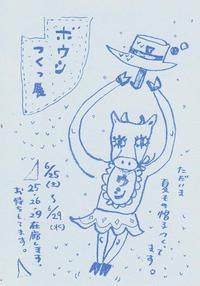 ボウシ
つくっ展
ただいま
夏もの帽子つくって
ます。
ウシ
6/25(土)
〜
6/29(水)
25 26 29 在廊します。
お待ちしてます。